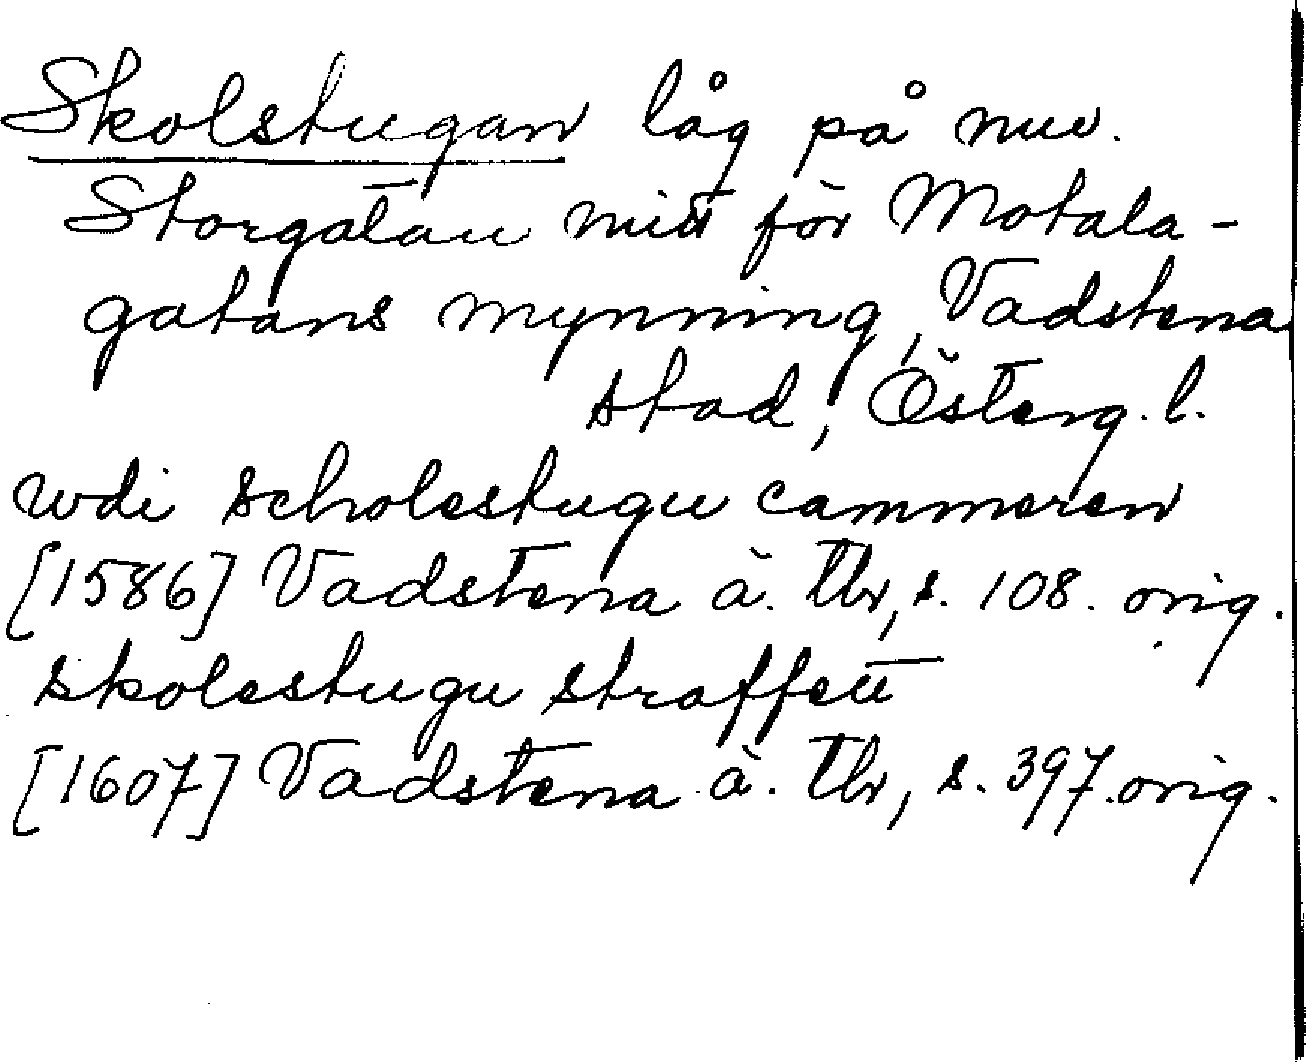 Skolstugan låg på nuv.
Storgatan mitt för Motala-
gatans mynning, Vadstena
stad, Österg. l.
wdi scholestugu cammeren
[1586] Vadstena ä. tbr, s. 108. orig.
skolestugu straffett
[1607] Vadstena ä. tbr, s. 397. orig.